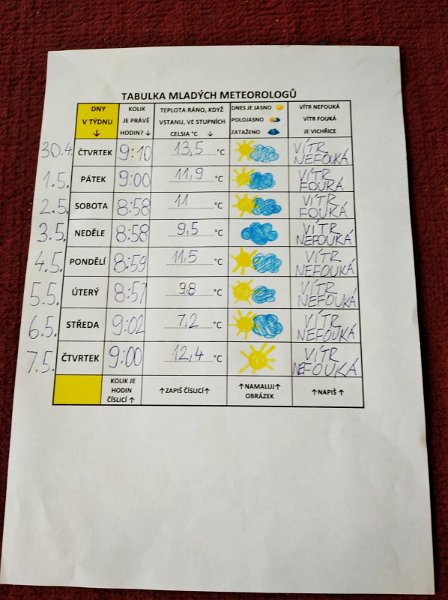 TABULKA MLADÝCH METEOROLOGŮ
DNY V TÝDNU ↓
KOLIK JE PRÁVĚ HODIN? ↓
TEPLOTA RÁNO, KDYŽ VSTANU, VE STUPNÍCH CELSIA °C ↓
DNES JE JASNO POLOJASNO ZATAŽENO
VÍTR NEFOUKÁ VÍTR FOUKÁ JE VICHŘICE
30.4. ČTVRTEK 9:10 13,5 °C VÍTR NEFOUKÁ
1.5. PÁTEK 9:00 11,9 °C VÍTR FOUKÁ
2.5. SOBOTA 8:58 11 °C VÍTR FOUKÁ
3.5. NEDĚLE 8:58 9,5 °C VÍTR NEFOUKÁ
4.5. PONDĚLÍ 8:59 11,5 °C VÍTR NEFOUKÁ
5.5. ÚTERÝ 8:57 9,8 °C VÍTR NEFOUKÁ
6.5. STŘEDA 9:02 7,2 °C VÍTR NEFOUKÁ
7.5. ČTVRTEK 9:00 12,4 °C VÍTR NEFOUKÁ
KOLIK JE HODIN ČÍSLICÍ ↑
↑ZAPIŠ ČÍSLICÍ↑
↑NAMALUJ↑ OBRÁZEK
↑NAPIŠ ↑